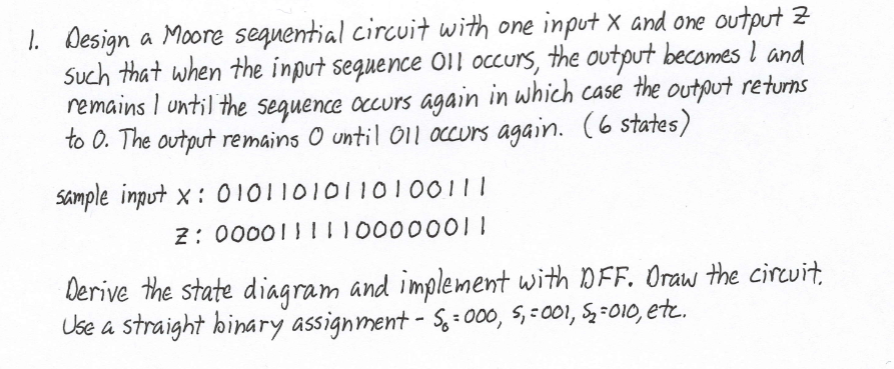 1. Design a Moore sequential circuit with one input X and one output Z
such that when the input sequence 011 occurs, the output becomes 1 and
remains 1 until the sequence occurs again in which case the output returns
to 0. The output remains 0 until 011 occurs again. (6 states)
Sample input X: 01011010110100111
Z: 00001111100000011
Derive the state diagram and implement with DFF. Draw the circuit.
Use a straight binary assignment - S₀=000, S₁=001, S₂=010, etc.